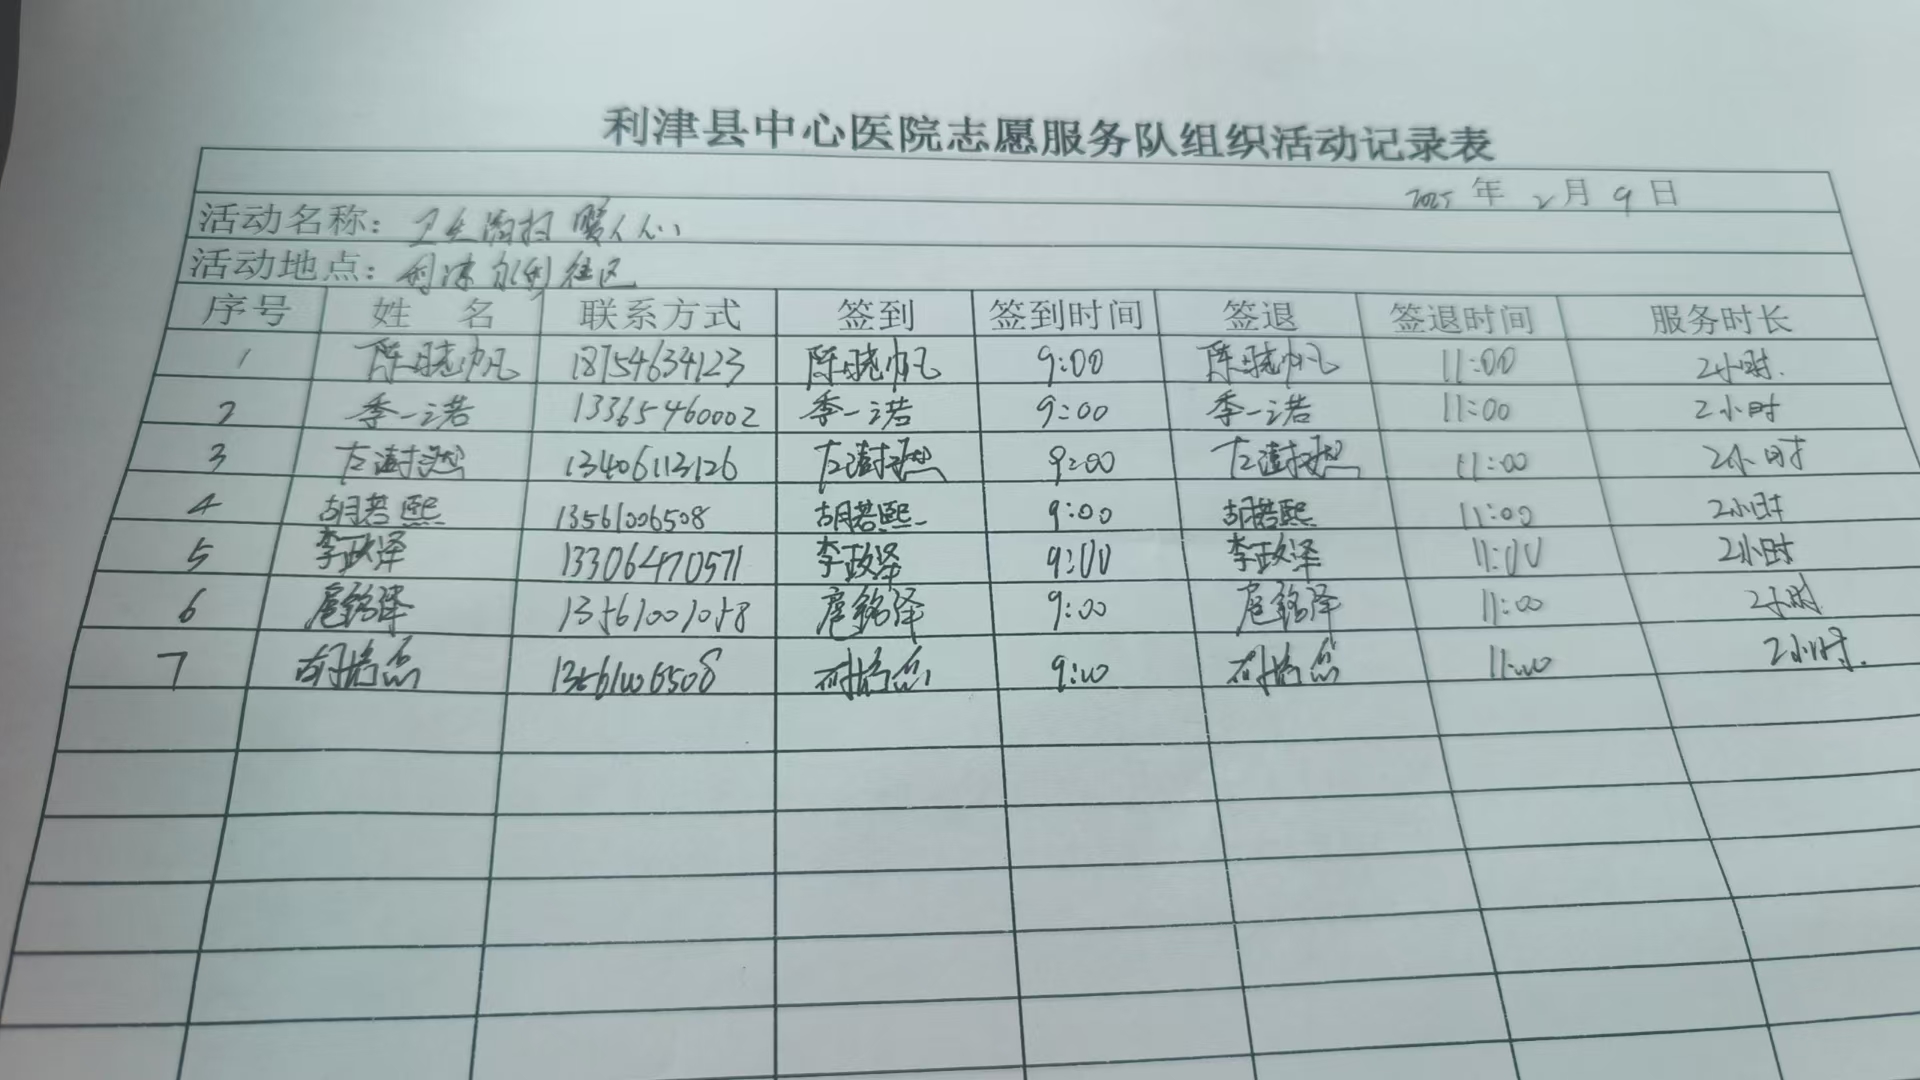 利津县中心医院志愿服务队组织活动记录表
2025 年 2 月 9 日
活动名称：卫生清扫 暖人心
活动地点：利津水利社区
序号 姓 名 联系方式 签到 签到时间 签退 签退时间 服务时长
1 陈晓帆 18754634123 陈晓帆 9:00 陈晓帆 11:00 2小时.
2 季一诺 13365460002 季一诺 9:00 季一诺 11:00 2小时
3 左澍 13406113126 左澍 9:00 左澍 11:00 2小时
4 胡若熙 13561006508 胡若熙 9:00 胡若熙 11:00 2小时
5 李政泽 13306470571 李政泽 9:00 李政泽 11:00 2小时
6 扈铭泽 13561001058 扈铭泽 9:00 扈铭泽 11:00 2小时
7 13561006508 9:00 11:00 2小时.